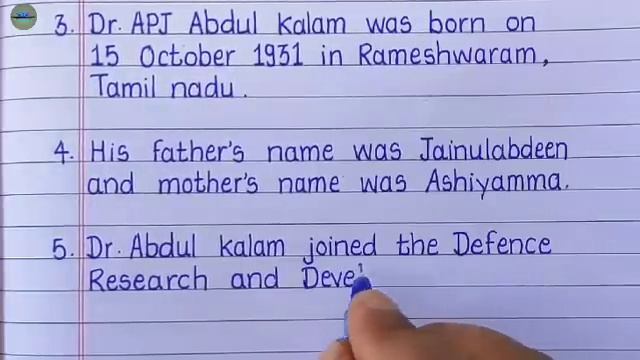 3. Dr. APJ Abdul Kalam was born on
15 October 1931 in Rameshwaram,
Tamil nadu.
4. His father's name was Jainulabdeen
and mother's name was Ashiyamma.
5. Dr. Abdul Kalam joined the Defence
Research and Deve